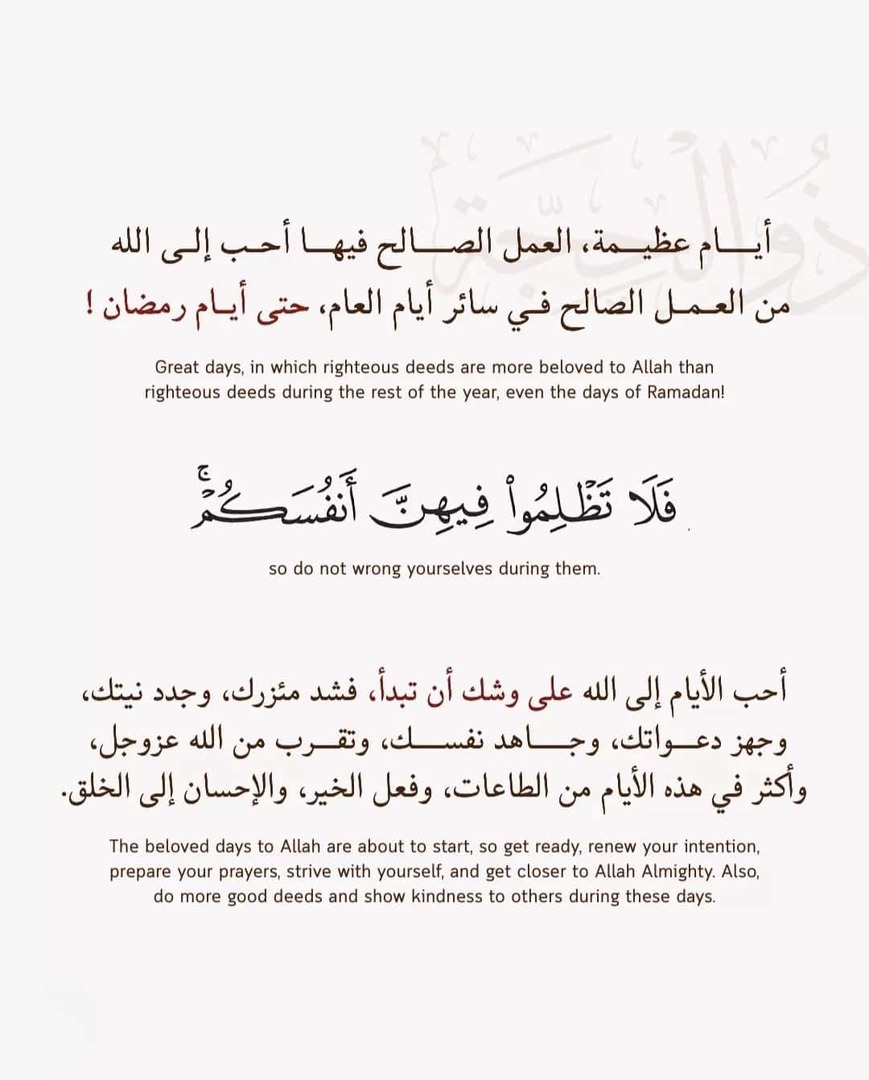 ذُو الْحِجَّة
أيـــام عظيـمة، العمل الصـــالح فيهـا أحـب إلـى الله
من العـمـل الصالح فـي سائر أيام العام، حتى أيـام رمضان !
Great days, in which righteous deeds are more beloved to Allah than
righteous deeds during the rest of the year, even the days of Ramadan!
فَلَا تَظْلِمُوا۟ فِيهِنَّ أَنفُسَكُمْ ۚ
so do not wrong yourselves during them.
أحب الأيام إلى الله على وشك أن تبدأ، فشد مئزرك، وجدد نيتك،
وجهز دعـواتك، وجـــاهد نفســـك، وتقـرب من الله عزوجل،
وأكثر في هذه الأيام من الطاعات، وفعل الخير، والإحسان إلى الخلق.
The beloved days to Allah are about to start, so get ready, renew your intention,
prepare your prayers, strive with yourself, and get closer to Allah Almighty. Also,
do more good deeds and show kindness to others during these days.